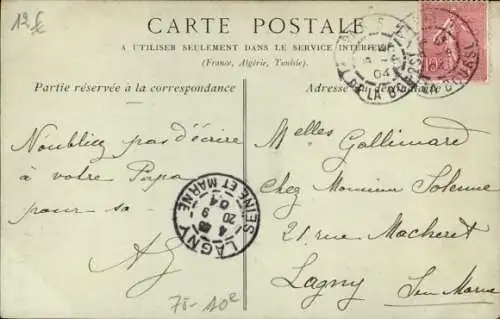 12€
CARTE POSTALE
A UTILISER SEULEMENT DANS LE SERVICE INTÉRIEUR
(France, Algérie, Tunisie).
Partie réservée à la correspondance
Adresse du destinataire
N'oubliez pas d'écrire
à votre Papa
pour sa
AG
Melles Gallimard
Chez Monsieur Solenne
21, rue Macheret
Lagny
LAGNY
SEINE ET MARNE
20
04
75-10e